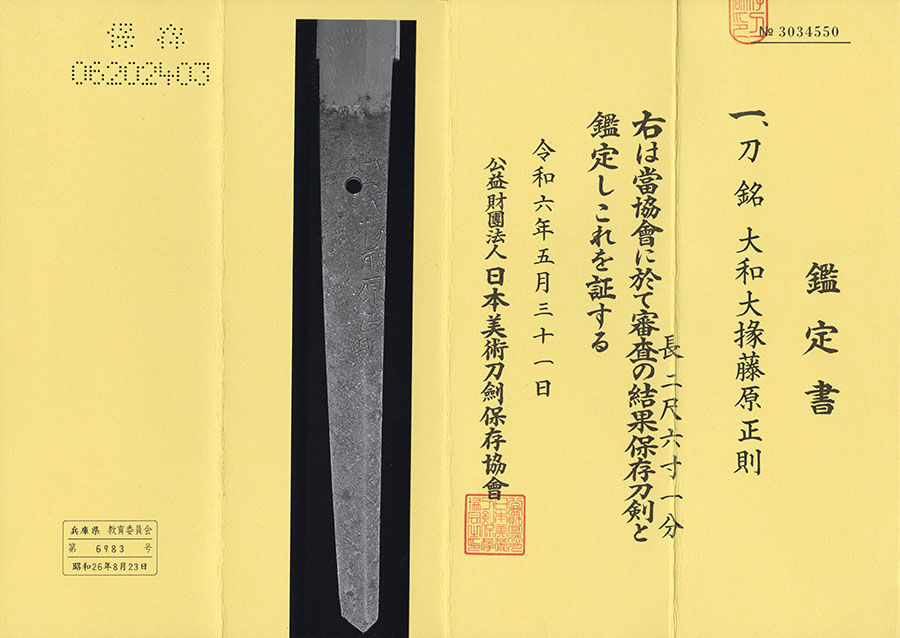 № 3034550
鑑定書
一、刀 銘 大和大掾藤原正則
長二尺六寸一分
右は當協會に於て審査の結果保存刀剣と
鑑定しこれを証する
令和六年五月三十一日
公益財團法人 日本美術刀劍保存協會
保存
06202403
兵庫県 教育委員会
第 6983 号
昭和26年8月23日